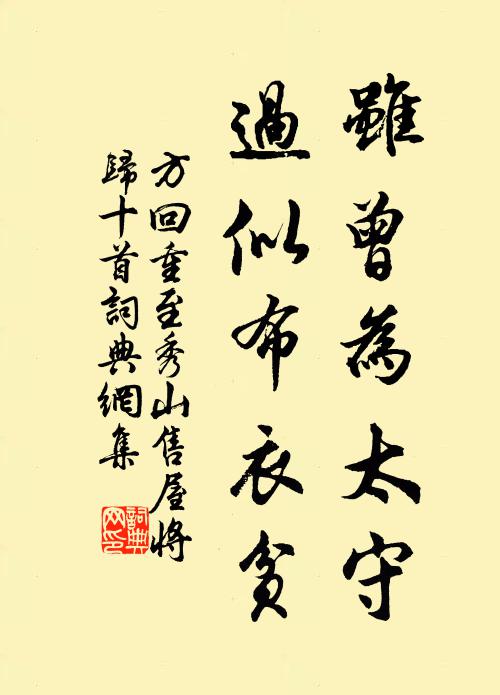 雖曾為太守
過似布衣貧
方回重至秀山售屋將
歸十首詞典網集
詞典網印